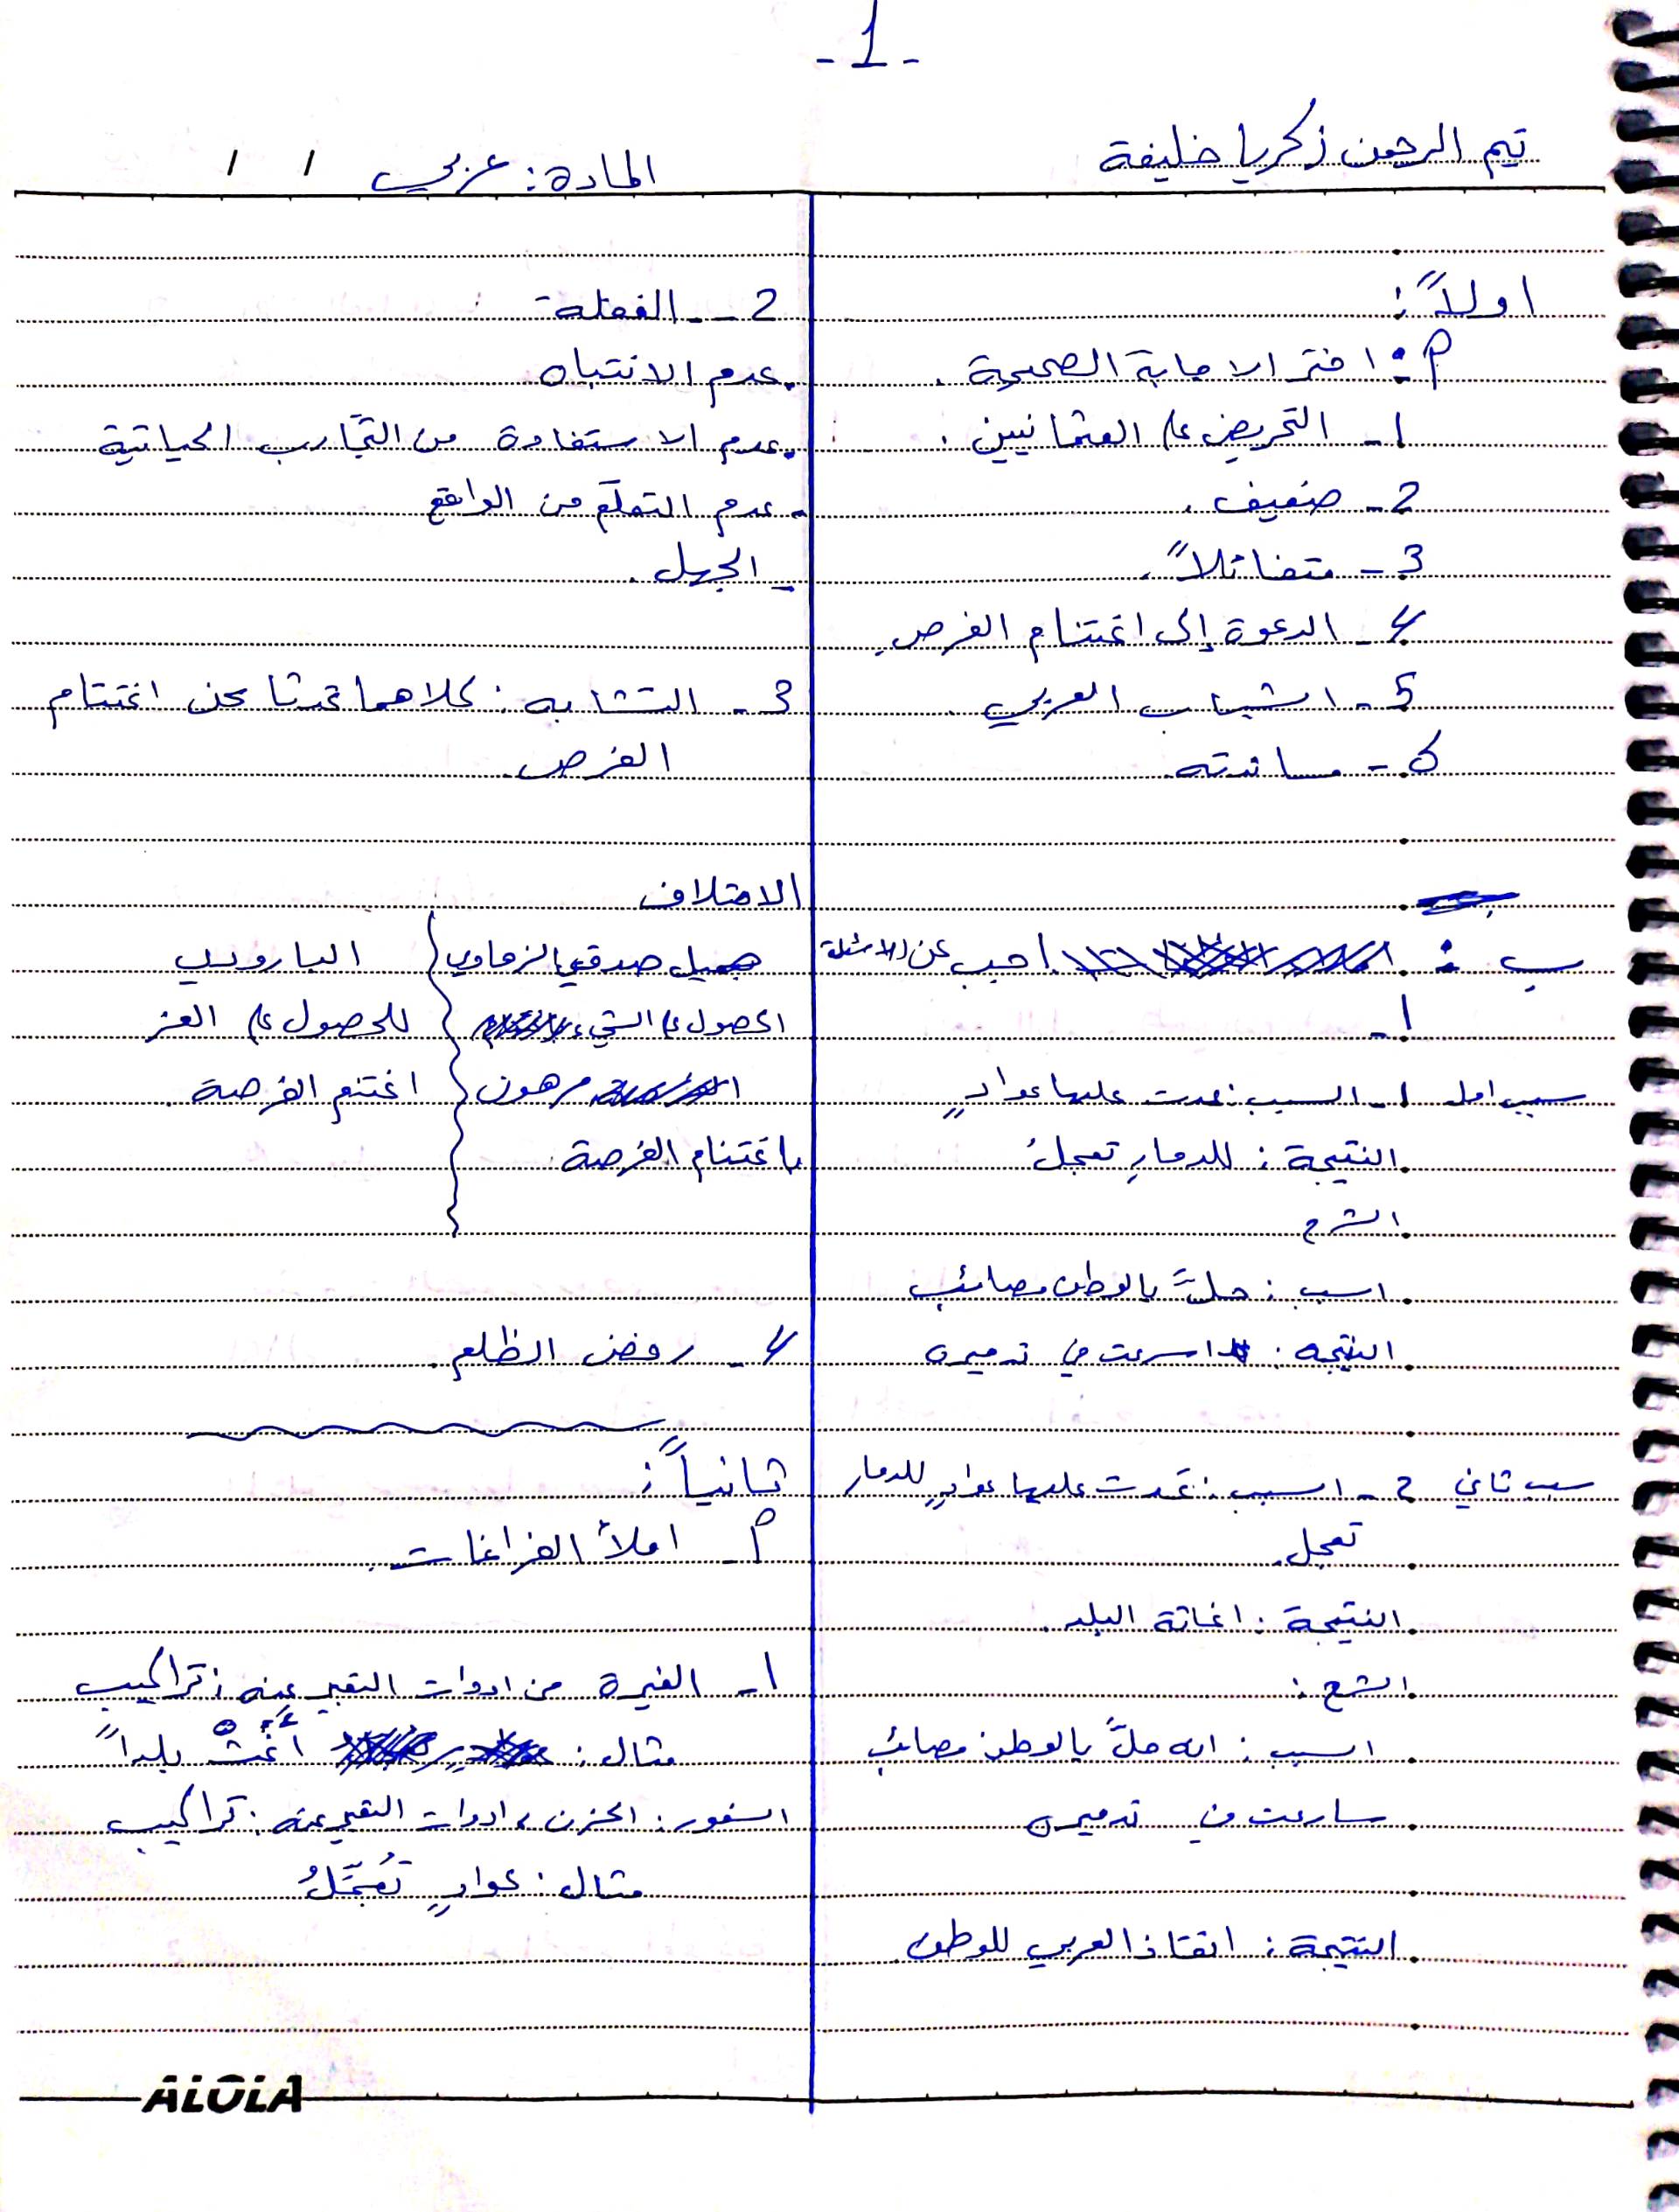 - 1 -
تيم الرحمن زكريا خليفة
المادة: عربي / /
اولاً:
P: اختر الاجابة الصحيحة.
1- التحريض على العثمانيين.
2- ضعيف.
3- متفائلاً.
4- الدعوة إلى اغتنام الفرص.
5- الشباب العربي
6- مساندته.
ب: اجب عن الاسئلة
1-
سبب اول 1- السبب: عدت عليها عوادٍ
النتيجة: للدمارِ تعجلُ
الشرح
السبب: حلَّ بالوطن مصائب
النتيجة: اسرعت في تدميره
سبب ثاني 2- السبب: عَدت عليها عوادٍ للدمار
تعجل.
النتيجة: اغاثة البلد.
الشرح:
السبب: انه حلَّ بالوطن مصائب
سارعت في تدميره
النتيجة: انقاذ العربي للوطن
2- الغفلة-
. عدم الانتباه
. عدم الاستفادة من التَّجارب الحياتية
- عدم التعلّم من الواقع
- الجهل.
3- التشابه: كلاهما تحدثا عن اغتنام
الفرص.
الاختلاف
جميل صدقي الزهاوي
الحصول على الشيء
مرهون
باغتنام الفرصة.
البارودي
للحصول على العز
اغتنم الفرصة.
4- رفض الظلم.
ثانياً:
P- املأ الفراغات.
1- الغيرة من ادوات التعبير عنه: تراكيب
مثال: أغثْ بلداً
الشعور: الحزن، ادوات التعبير عنه: تراكيب
مثال: عوادٍ تُعجِّلُ
ALOLA